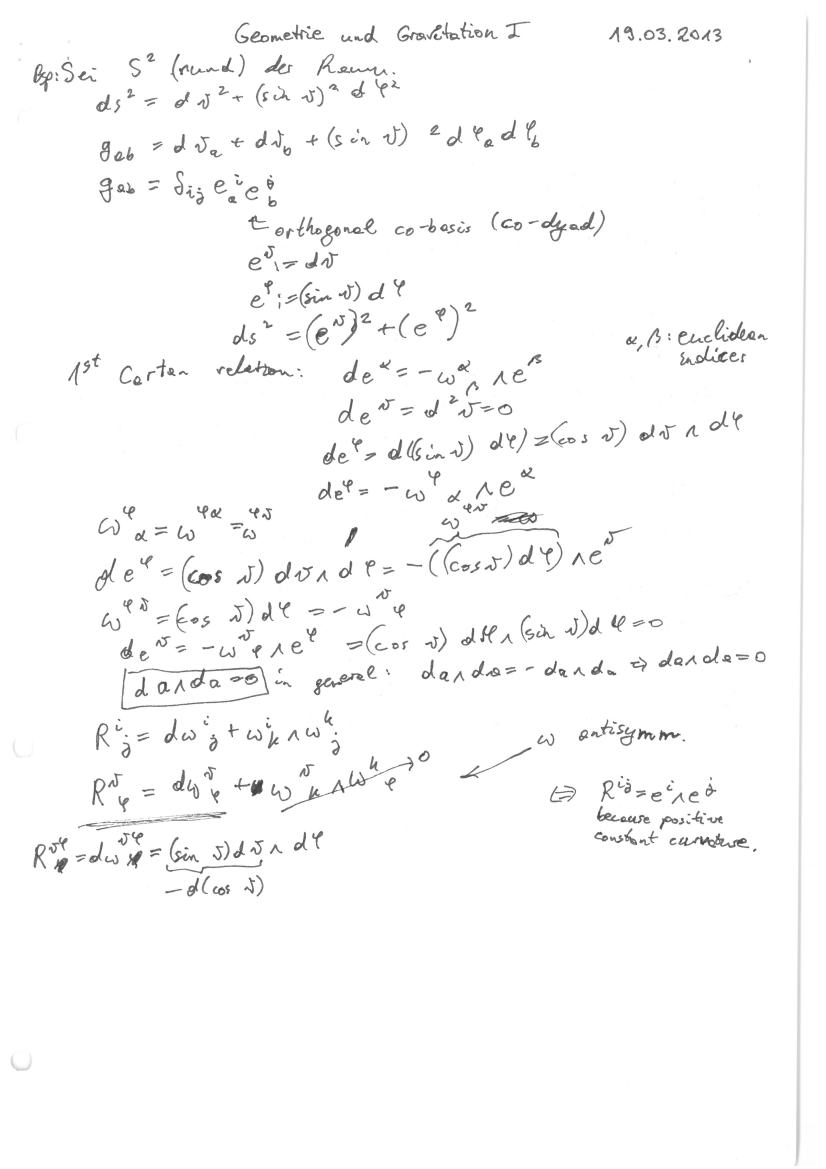 Geometrie und Gravitation I 19.03.2013
Bsp: Sei S² (rund) der Raum.
ds² = dϑ² + (sin ϑ)² dφ²
g_ab = dϑ_a + dϑ_b + (sin ϑ) ² dφ_a dφ_b
g_ab = δ_ij e^i_a e^j_b
↑ orthogonal co-basis (co-dyad)
e^ϑ := dϑ
e^φ := (sin ϑ) dφ
ds² = (e^ϑ)² + (e^φ)²
α, β: euclidean
indices
1st Cartan relation: de^α = -ω^α_β ∧ e^β
de^ϑ = d²ϑ = 0
de^φ = d((sin ϑ) dφ) = (cos ϑ) dϑ ∧ dφ
de^φ = -ω^φ_α ∧ e^α
ω^φ_α = ω^φα = ω^φϑ
ω^φϑ
de^φ = (cos ϑ) dϑ ∧ dφ = -((cos ϑ) dφ) ∧ e^ϑ
ω^φϑ = (cos ϑ) dφ = -ω^ϑ_φ
de^ϑ = -ω^ϑ_φ ∧ e^φ = (cos ϑ) dφ ∧ (sin ϑ) dφ = 0
da ∧ da = 0 in general: da ∧ da = - da ∧ da ⇒ da ∧ da = 0
R^i_j = dω^i_j + ω^i_k ∧ ω^k_j
ω antisymm.
R^ϑ_φ = dω^ϑ_φ + ω^ϑ_k ∧ ω^k_φ → 0
⇔ R^ij = e^i ∧ e^j
because positive
constant curvature.
R^ϑφ = dω^ϑφ = (sin ϑ) dϑ ∧ dφ
-d(cos ϑ)